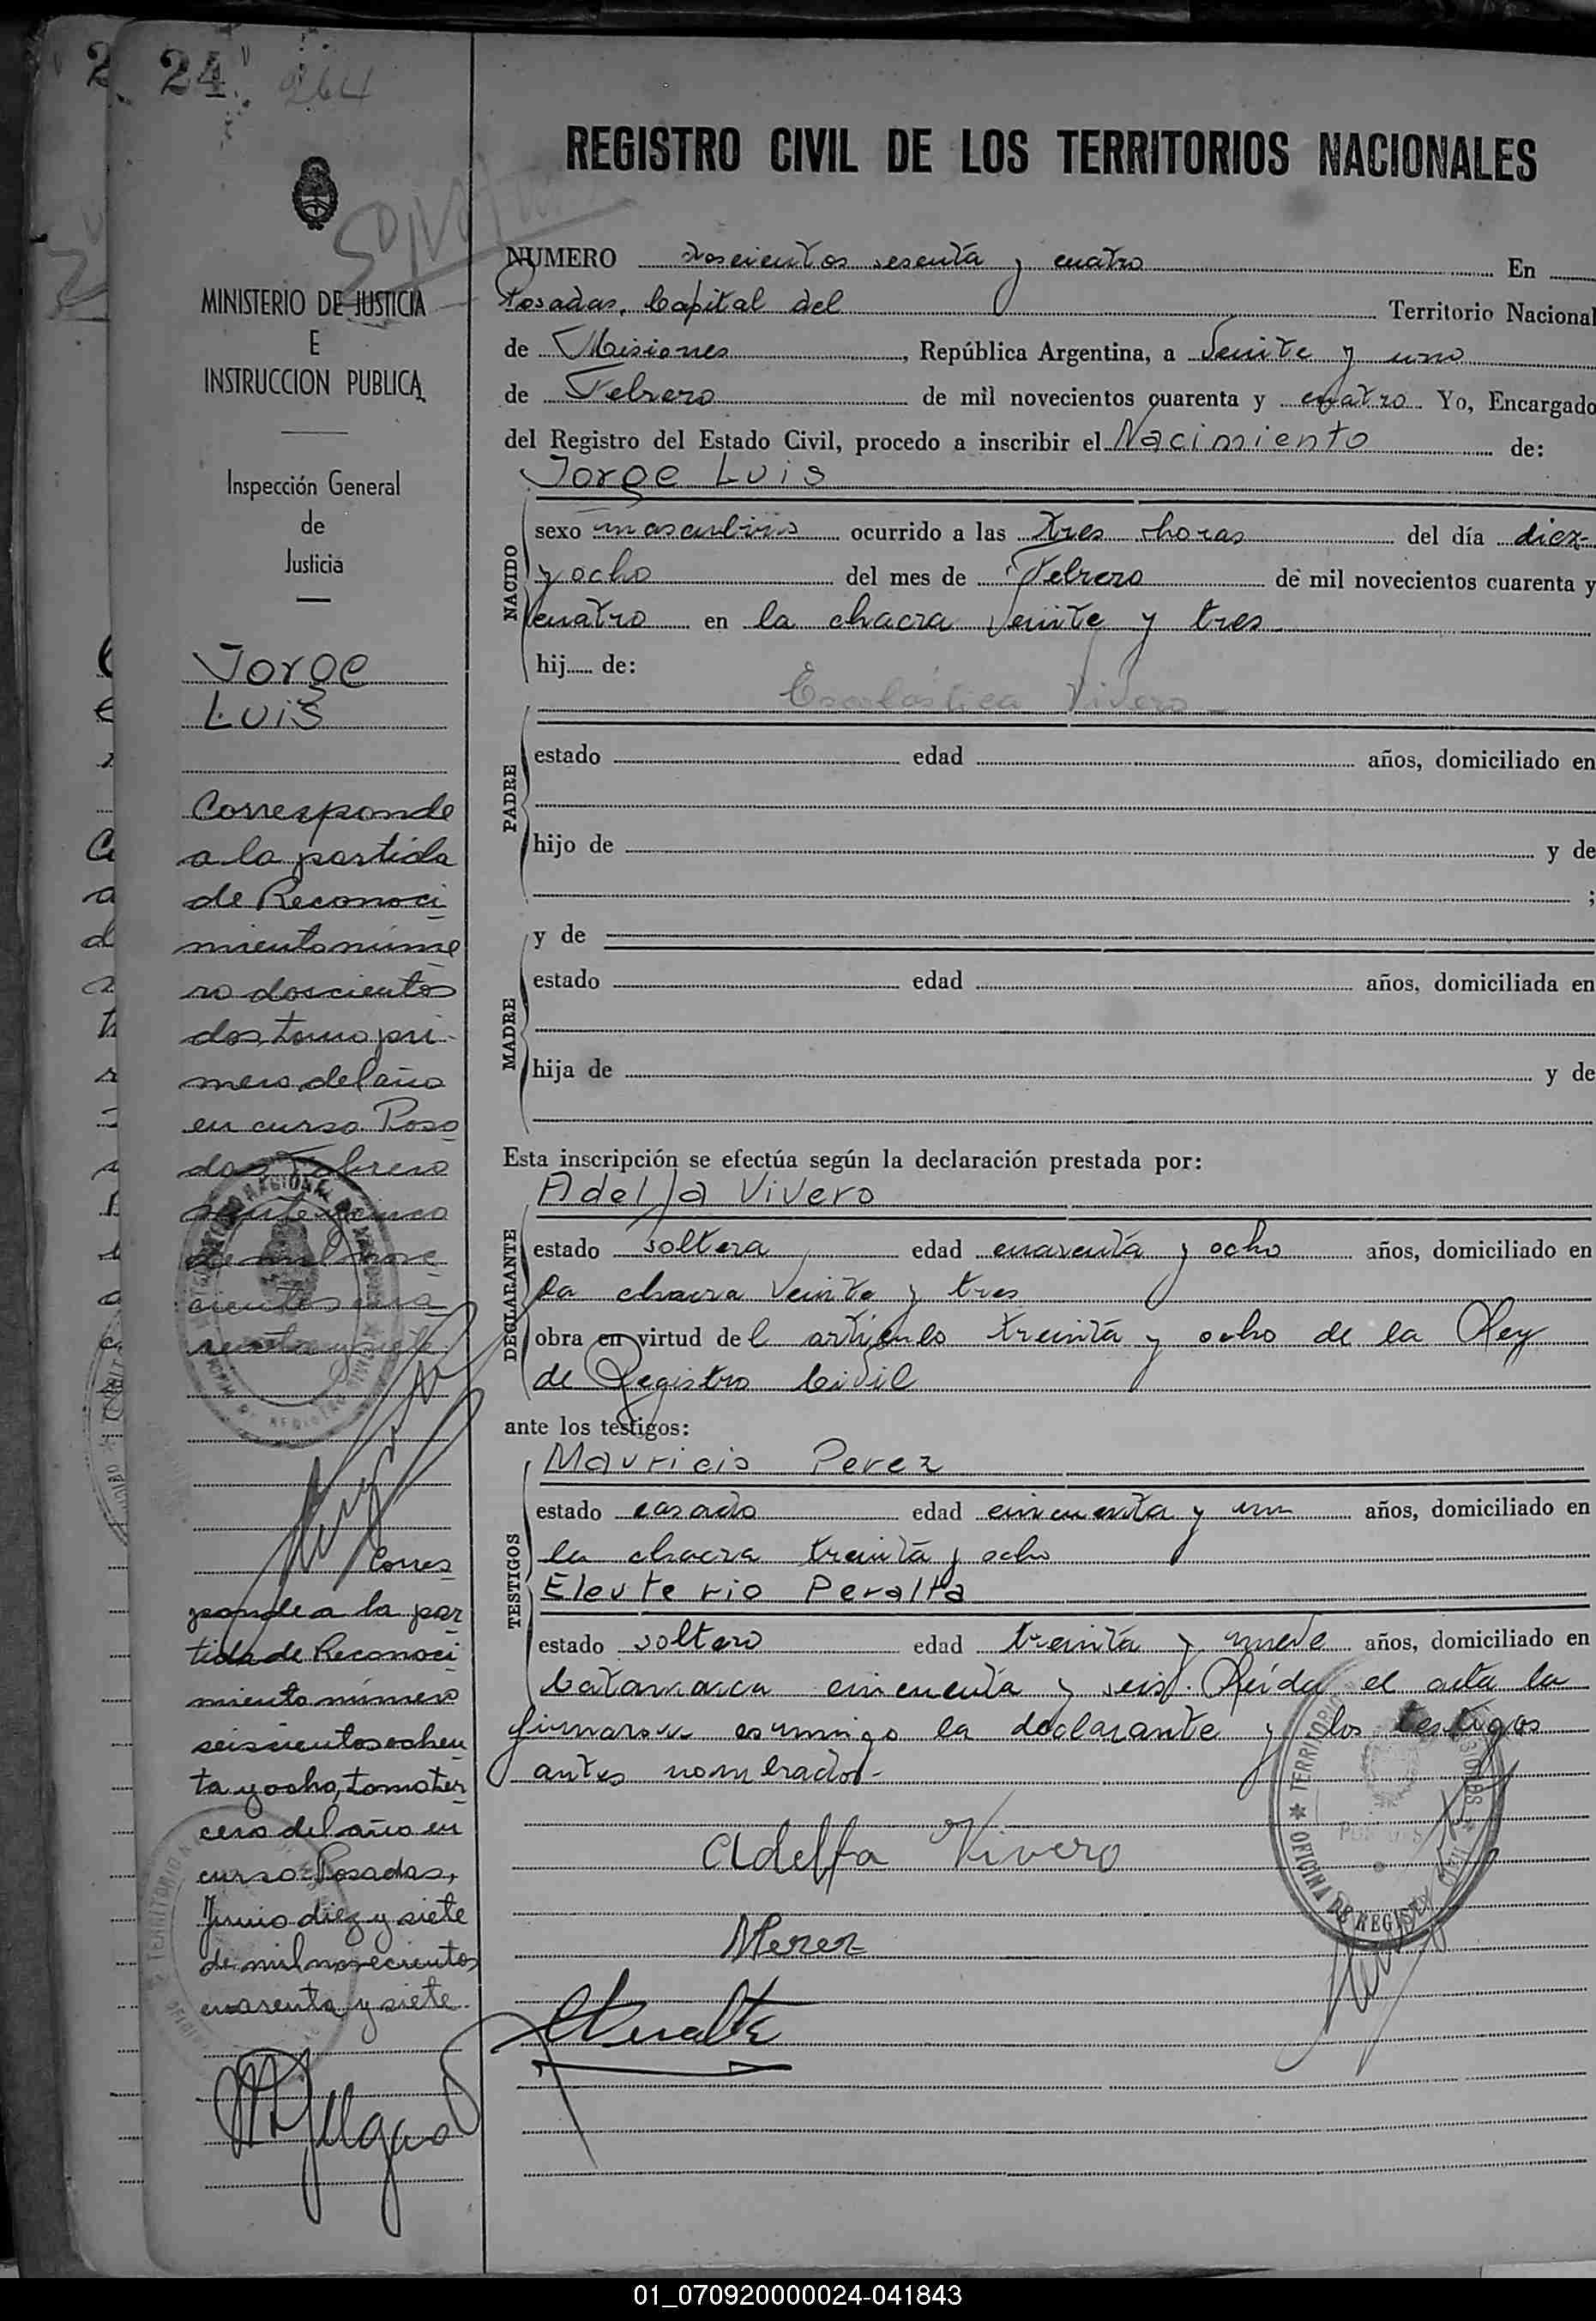 24
264
REGISTRO CIVIL DE LOS TERRITORIOS NACIONALES
MINISTERIO DE JUSTICIA
E
INSTRUCCION PUBLICA
Inspección General
de
Justicia
Jorge
Luis
Corresponde
a la partida
de Reconoci
miento núme
ro doscientos
dos, tomo pri-
mero del año
en curso. Posa
das, Febrero
veinte y cinco
de mil nove
cientos cua
renta y siete.
Corres
ponde a la par
tida de Reconoci
miento número
seiscientos ochen
ta y ocho, tomo ter
cero del año en
curso. Posadas,
Junio diez y siete
de mil novecientos
cuarenta y siete.
NUMERO doscientos sesenta y cuatro En
Posadas, Capital del Territorio Nacional
de Misiones, República Argentina, a veinte y uno
de Febrero de mil novecientos cuarenta y cuatro Yo, Encargado
del Registro del Estado Civil, procedo a inscribir el Nacimiento de:
Jorge Luis
NACIDO
sexo masculino ocurrido a las tres horas del día diez
y ocho del mes de Febrero de mil novecientos cuarenta y
cuatro en la chacra veinte y tres
hij de:
Escolástica Vivero
PADRE
estado edad años, domiciliado en
hijo de y de
;
y de
MADRE
estado edad años, domiciliada en
hija de y de
Esta inscripción se efectúa según la declaración prestada por:
Adelfa Vivero
DECLARANTE
estado soltera edad cuarenta y ocho años, domiciliado en
la chacra veinte y tres
obra en virtud del artículo treinta y ocho de la Ley
de Registro Civil
ante los testigos:
TESTIGOS
Mauricio Perez
estado casado edad cincuenta y un años, domiciliado en
la chacra treinta y ocho
Eleuterio Peralta
estado soltero edad treinta y nueve años, domiciliado en
Catamarca cincuenta y seis. Leída el acta la
firmaron conmigo la declarante y los testigos
antes nombrados-
Adelfa Vivero
MPerez
EPeralta
TERRITORIO MISIONES
OFICINA DE REGISTRO CIVIL
01_070920000024-041843